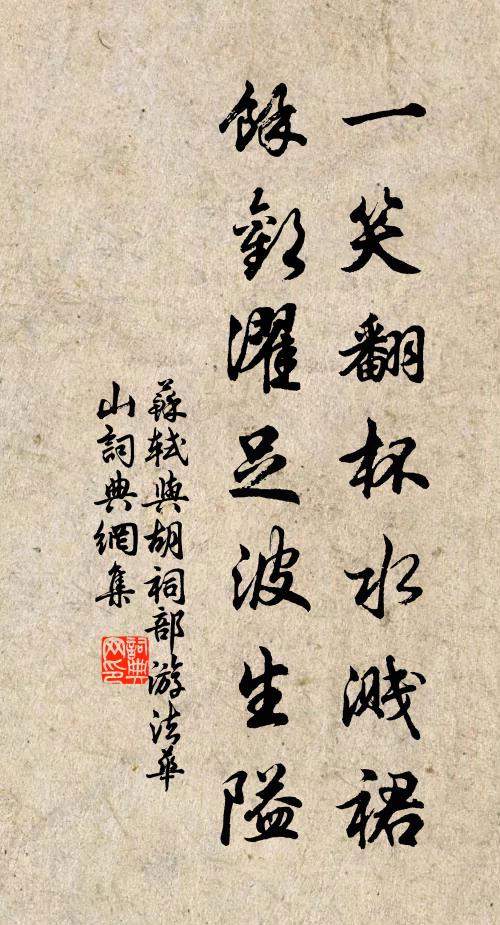 一笑翻杯水濺裙
餘歡濯足波生隘
蘇軾與胡祠部游法華
山詞典網集
詞典
网印